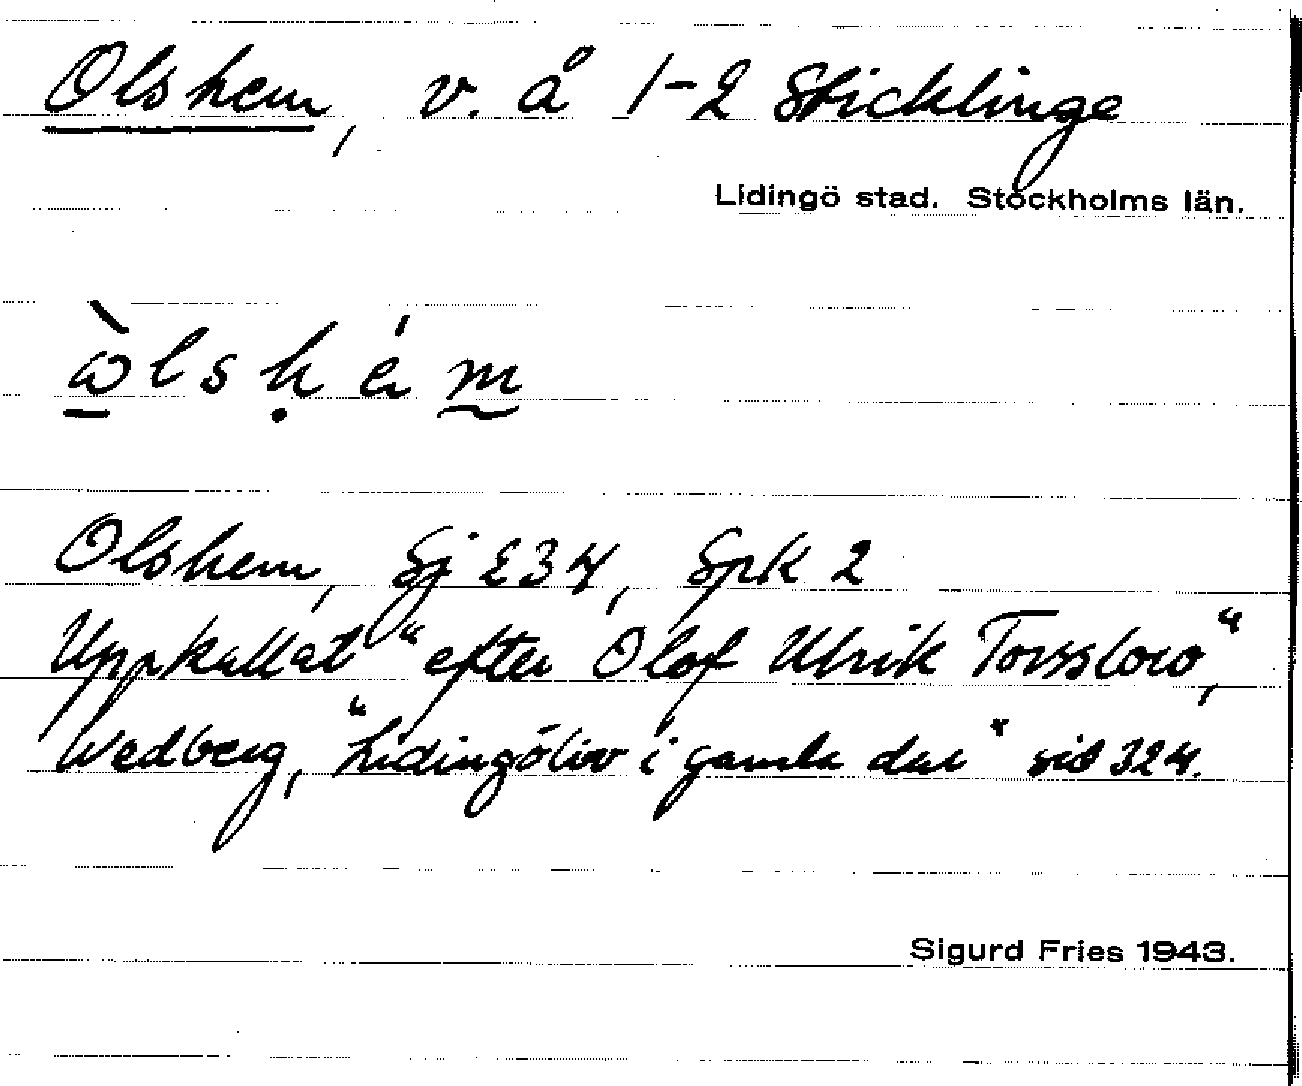 Olshem, v. å 1-2 Sticklinge
Lidingö stad. Stockholms län.
ὼlsḥém
Olshem, Sj 234, Spk 2
Uppkallat "efter Olof Ulrik Torsslow",
Wedberg, "Lidingöliv i gamla dar" sid 324.
Sigurd Fries 1943.